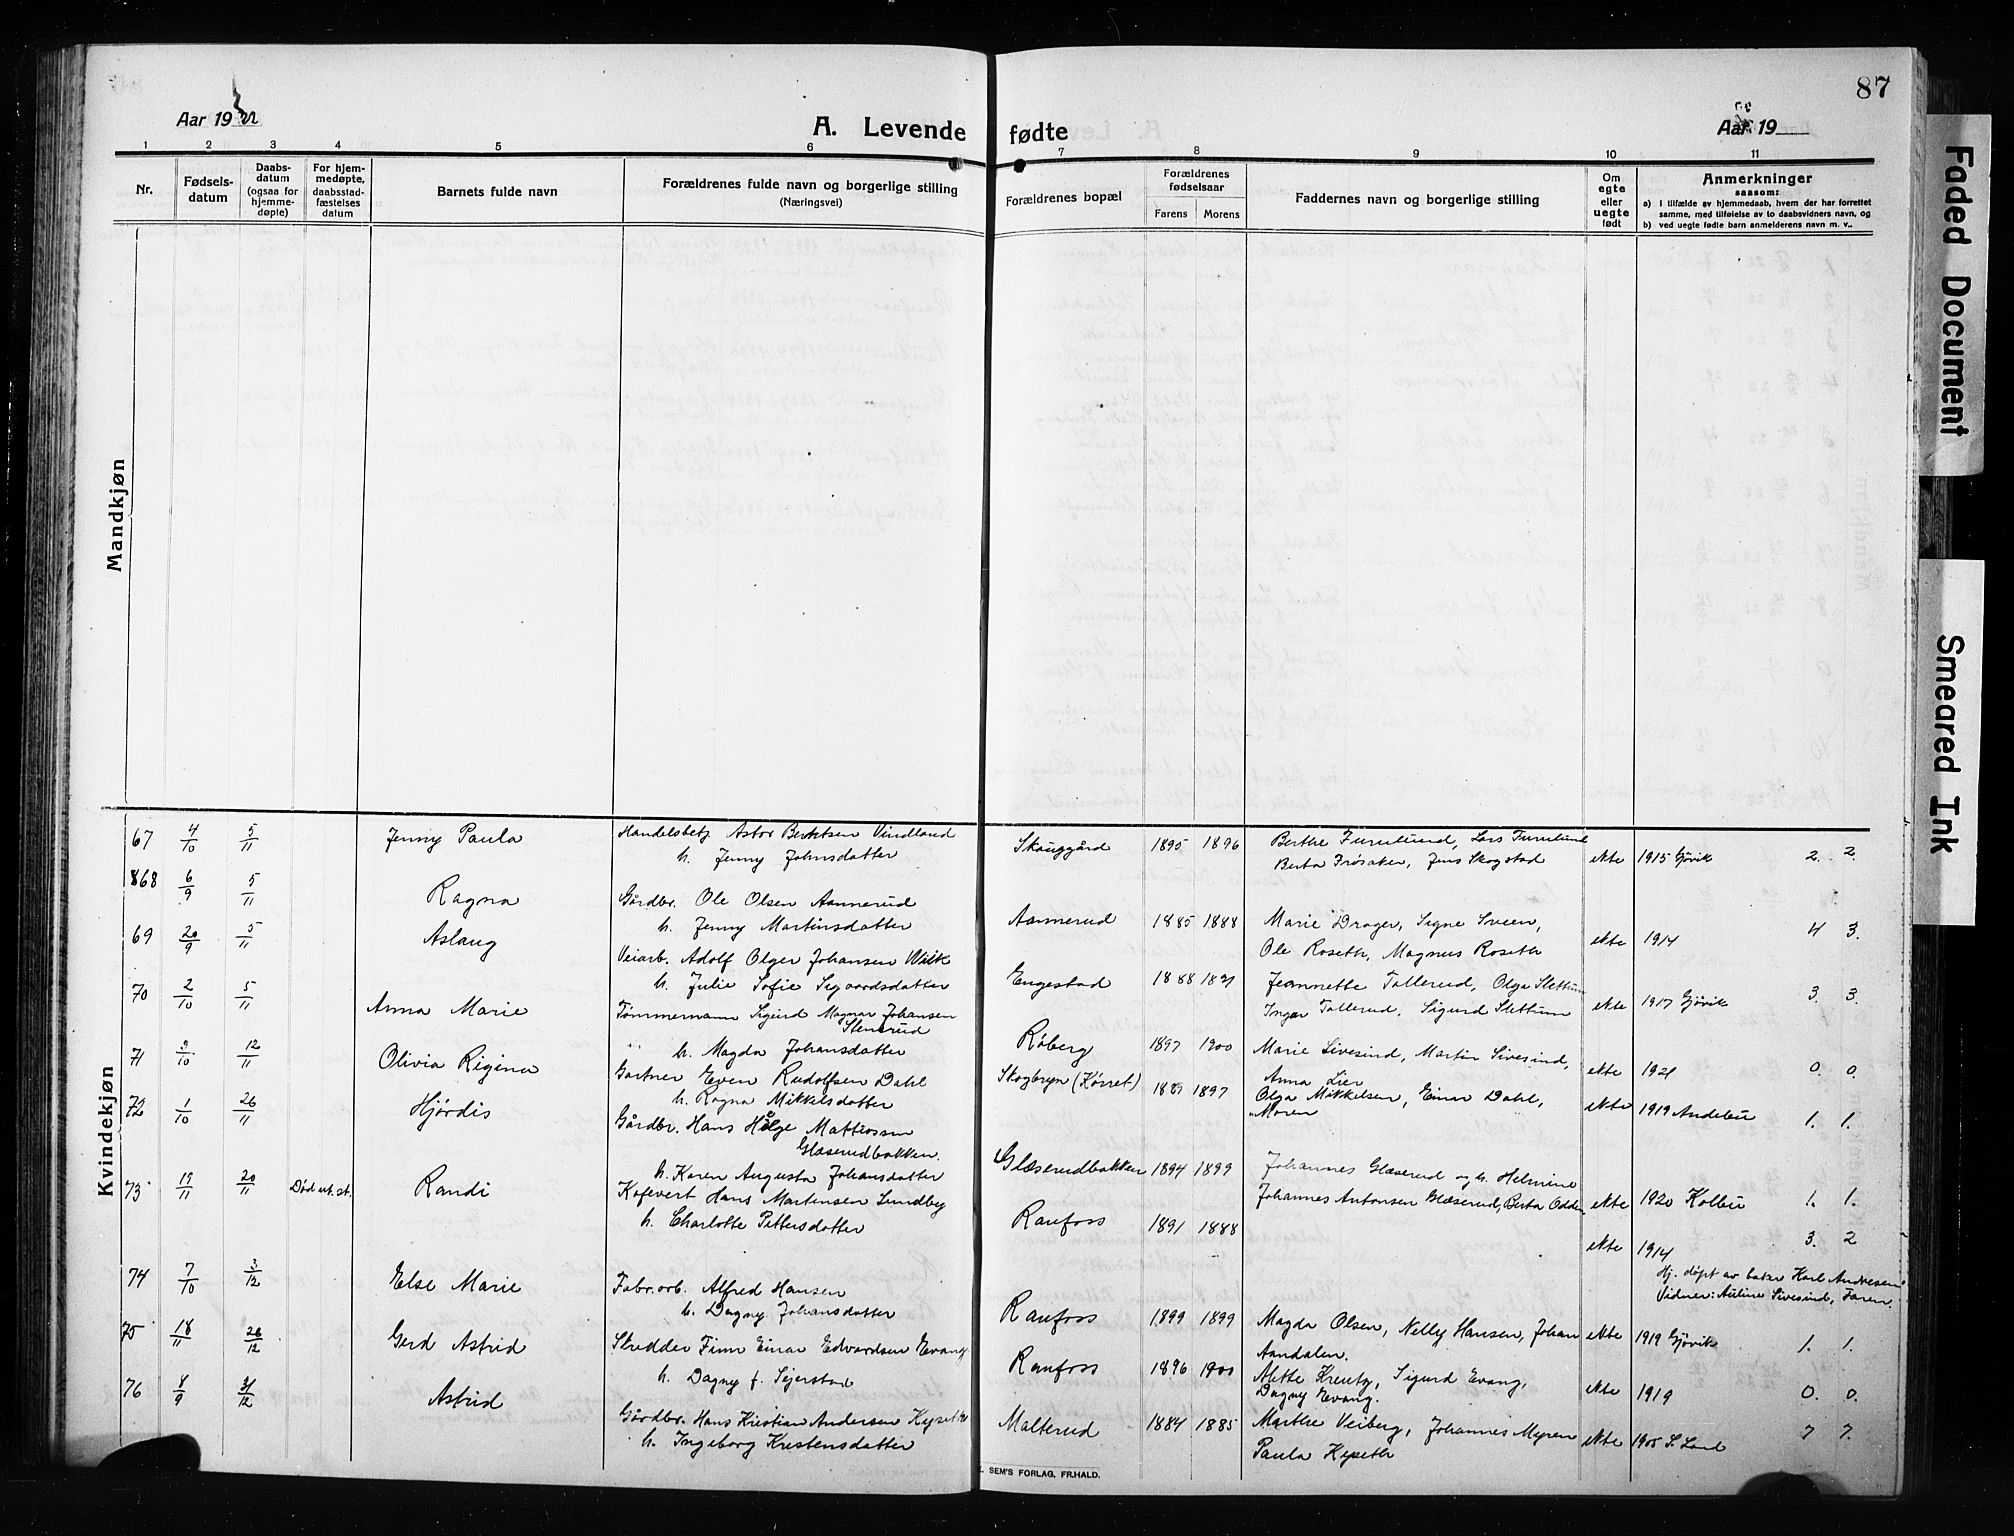 87
Aar 1922
A. Levende fødte
Aar 19
1 2 3 4 5 6 7 8 9 10 11
Nr.
Fødsels-
datum
Daabs-
datum
(ogsaa for
hjemme-
døpte)
For hjem-
medøpte,
daabsstad-
fæstelses
datum
Barnets fulde navn
Forældrenes fulde navn og borgerlige stilling
(Næringsvei)
Forældrenes bopæl
Forældrenes
fødselsaar
Farens Morens
Faddernes navn og borgerlige stilling
Om
egte
eller
uegte
født
Anmerkninger
saasom:
a) I tilfælde av hjemmedaab, hvem der har forrettet
samme, med tilføielse av to daabsvidners navn, og
b) ved uegte fødte barn anmelderens navn m. v..
Mandkjøn
Kvindekjøn
67 4/10 5/11 Jenny Paula Handelsbetj. Astor Berntsen Vindland
h. Jenny Johnsdatter
Skauggård 1895 1896 Berthe Furulund, Lars Furulund
Berta Frøsaker, Jens Skogstad ekte 1915 Gjøvik 2. 2.
868 6/9 5/11 Ragna Gårdbr. Ole Olsen Aannerud
h. Jenny Martinsdatter
Aannerud 1885 1888 Marie Drager, Signe Sveen,
Ole Roseth, Magnus Roseth ekte 1914 4 3.
69 20/9 5/11 Aslaug Veiarb. Adolf Olger Johansen Wilk
h. Julie Sofie Sigvardsdatter
Engestad 1888 1891 Jeannette Tollerud, Olga Slettum
Inger Tollerud, Sigurd Slettum ekte 1917 Gjøvik 3. 3.
70 2/10 5/11 Anna Marie Tømmermann Sigurd Magnar Johansen
Stenerud
h. Magda Johansdatter
Røberg 1897 1900 Marie Sivesind, Martin Sivesind,
Anna Lier ekte 1921 0. 0.
71 9/10 12/11 Olivia Rigina Gartner Even Rudolfsen Dahl
h. Ragna Mikkelsdatter
Skogbryn (Kørret) 1889 1897 Olga Mikkelsen, Einar Dahl,
Moren ekte 1919 Andebu 1. 1.
72 1/10 26/11 Hjørdis Gårdbr. Hans Helge Mattiassen
Glæserudbakken.
h. Karen Augusta Johansdatter
Glæserudbakken 1894 1899 Johannes Glæserud og h. Helmine
Johannes Antonsen Glæserud, Berta Odden ekte 1920 Kolbu 1. 1.
73 19/11 20/11 Død ut. st. Randi Kofevert Hans Martinsen Lundby
h. Charlotte Pettersdatter
Raufoss 1891 1888 ekte 1914 3. 2
Hj. døpt av baker Karl Andresen
Vidner: Auline Sivesind, Faren.
74 7/10 3/12 Else Marie Fabr.arb. Alfred Hansen
h. Dagny Johansdatter
Raufoss 1899 1899 Magda Olsen, Nelly Hansen, Johan
Aandalen. ekte 1919 Gjøvik 1. 1.
75 18/11 26/12 Gerd Astrid Skredder Finn Einar Edvardsen Evang
h. Dagny f. Sejerstad
Raufoss 1896 1900 Alette Kreutz, Sigurd Evang,
Dagny Evang. ekte 1919 0. 0.
76 8/9 31/12 Astrid Gårdbr. Hans Kristian Andersen Kyseth
h. Ingeborg Kristensdatter
Malterud 1884 1885 Marthe Veiberg, Johannes Myren
Paula Kyseth ekte 1905 S. Land 7 7.
SEM'S FORLAG, FR.HALD.
Faded Document
Smeared Ink